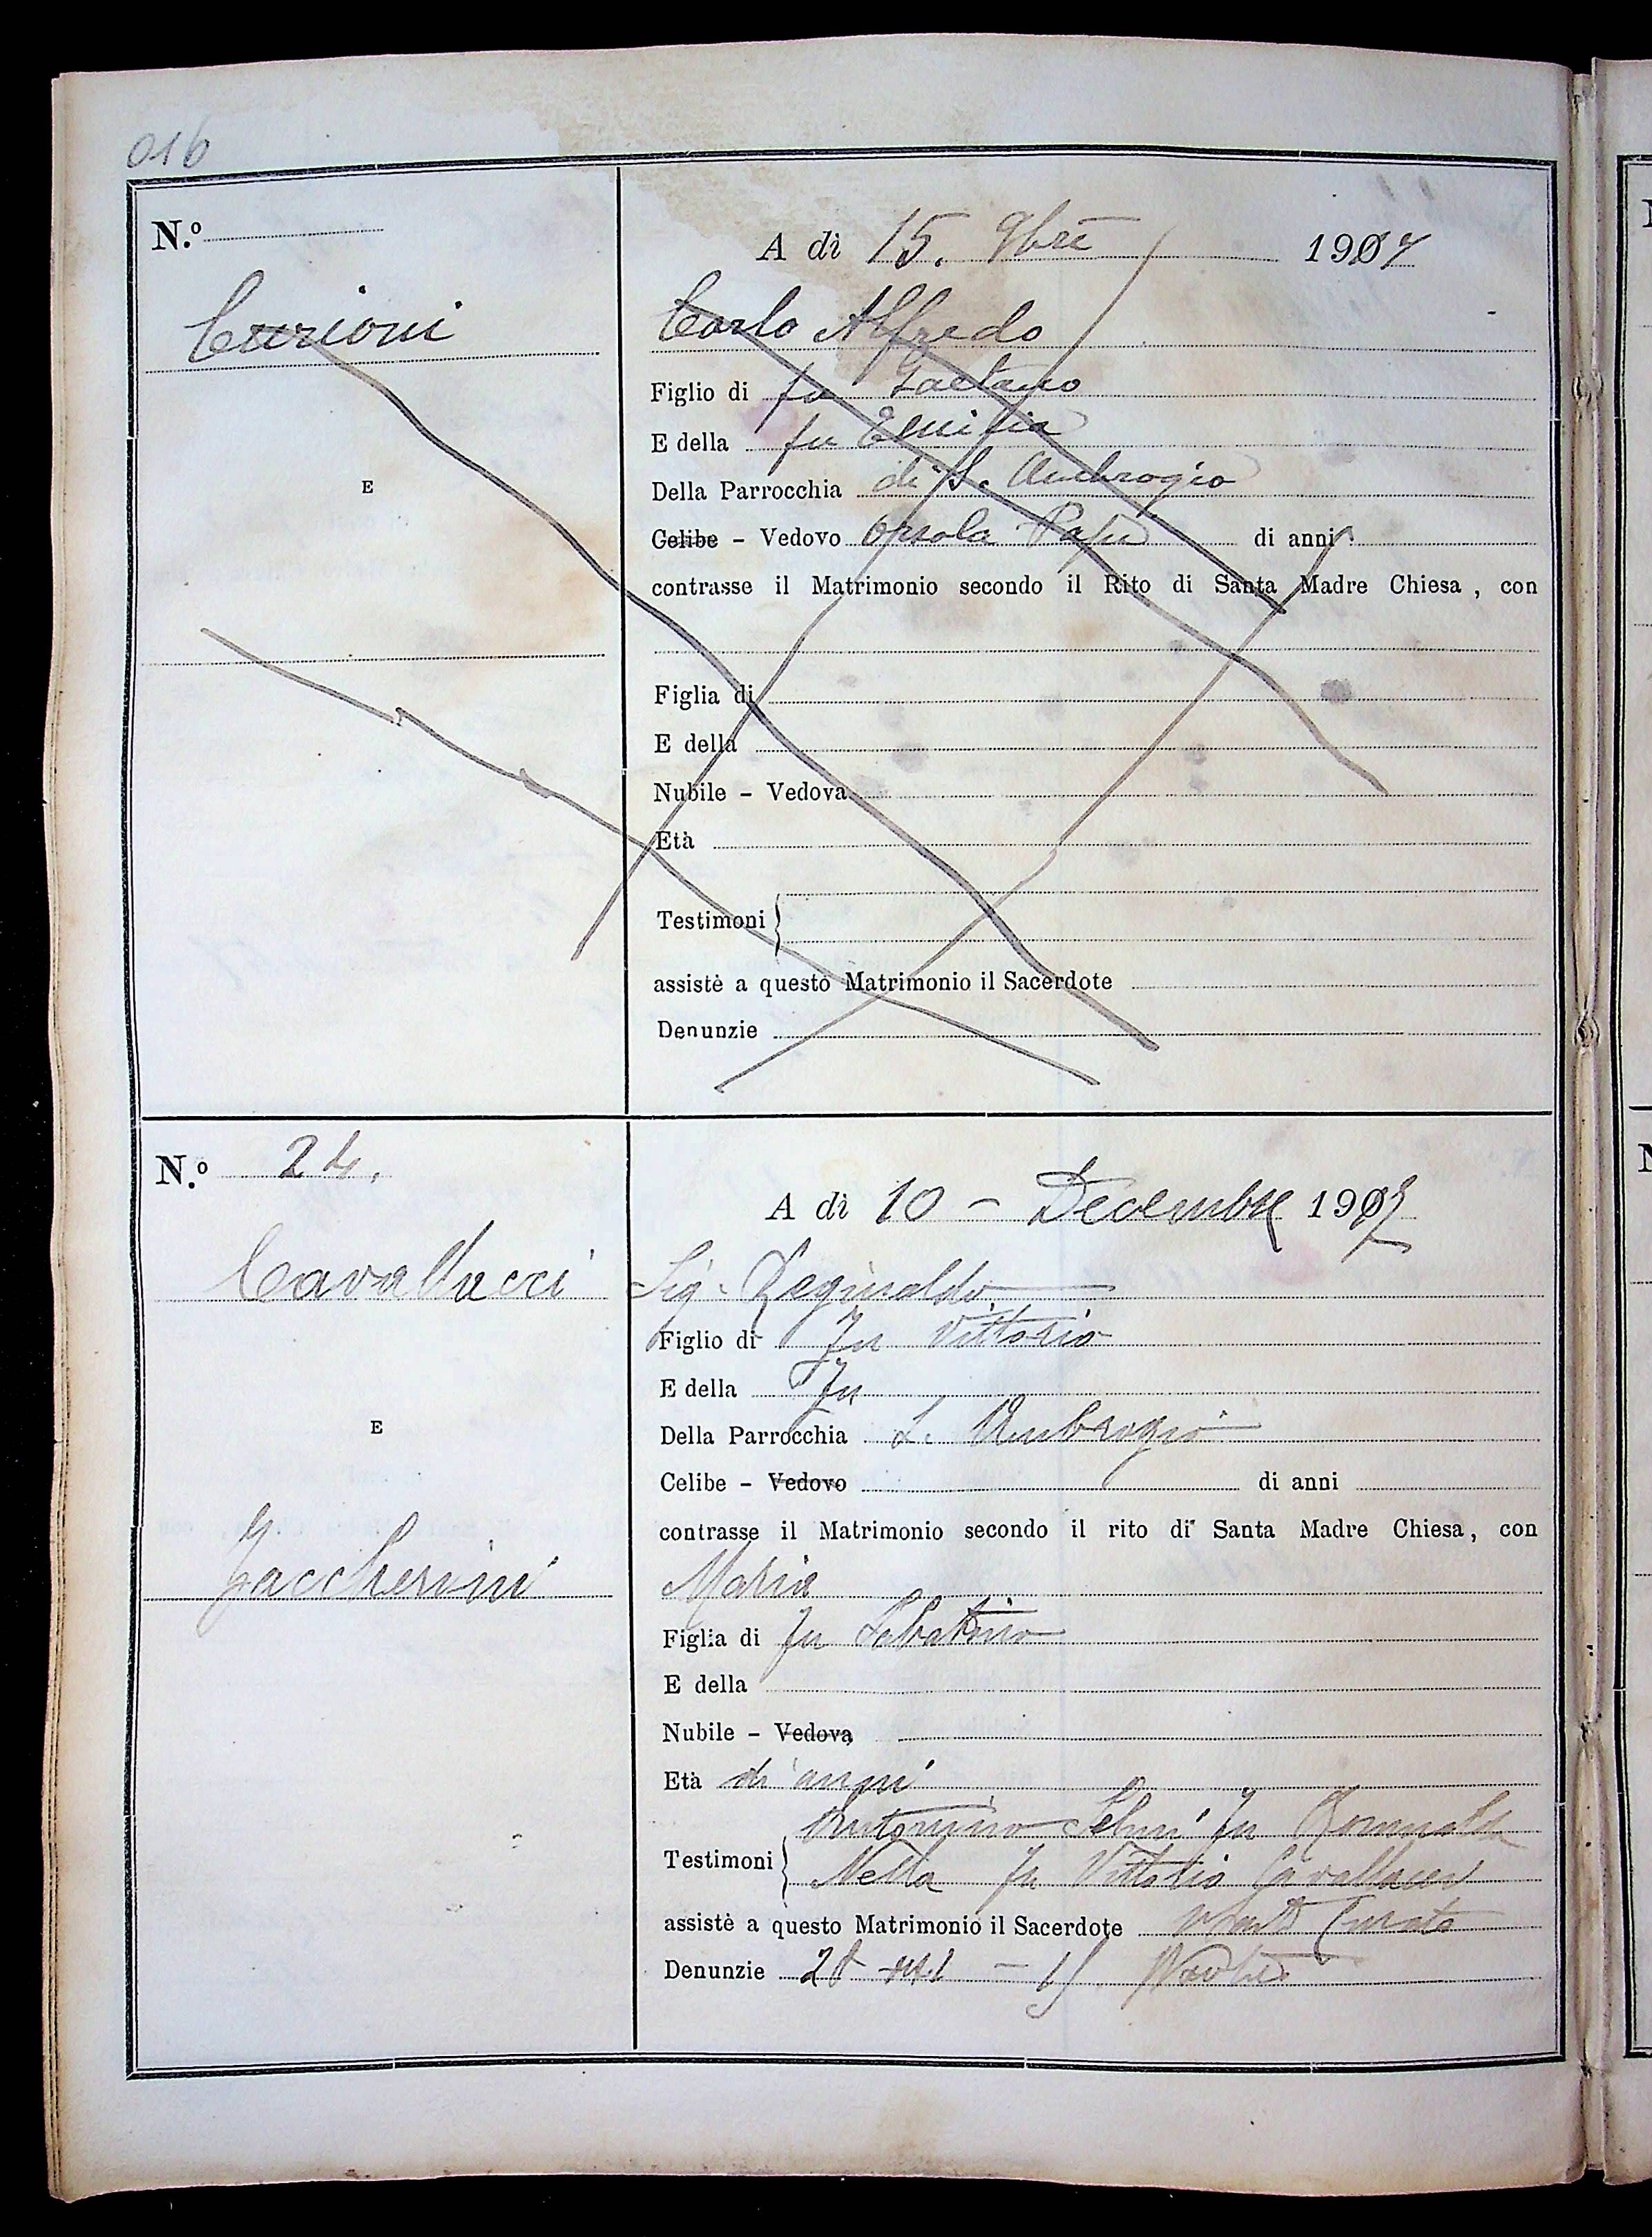 016
N.º
A dì 15. 9bre 1907
Curioni
Carlo Alfredo
Figlio di fu Gaetano
E della fu Emilia
E
Della Parrocchia di S. Ambrogio
Celibe - Vedovo Orsola di anni
contrasse il Matrimonio secondo il Rito di Santa Madre Chiesa, con
Figlia di
E della
Nubile - Vedova
Età
Testimoni
assistè a questo Matrimonio il Sacerdote
Denunzie
N.º 24.
A dì 10 - Decembre 190
Cavallucci
Sig. Reginaldo
Figlio di fu Vittorio
E della fu
E
Della Parrocchia S. Ambrogio
Celibe - Vedovo di anni
contrasse il Matrimonio secondo il rito di Santa Madre Chiesa, con
Zaccherini
Maria
Figlia di fu Sabatino
E della
Nubile - Vedova
Età di anni
Antonino Selmi fu Romualdo
Testimoni Nella fu Vittorio Cavallucci
assistè a questo Matrimonio il Sacerdote Curato
Denunzie 28